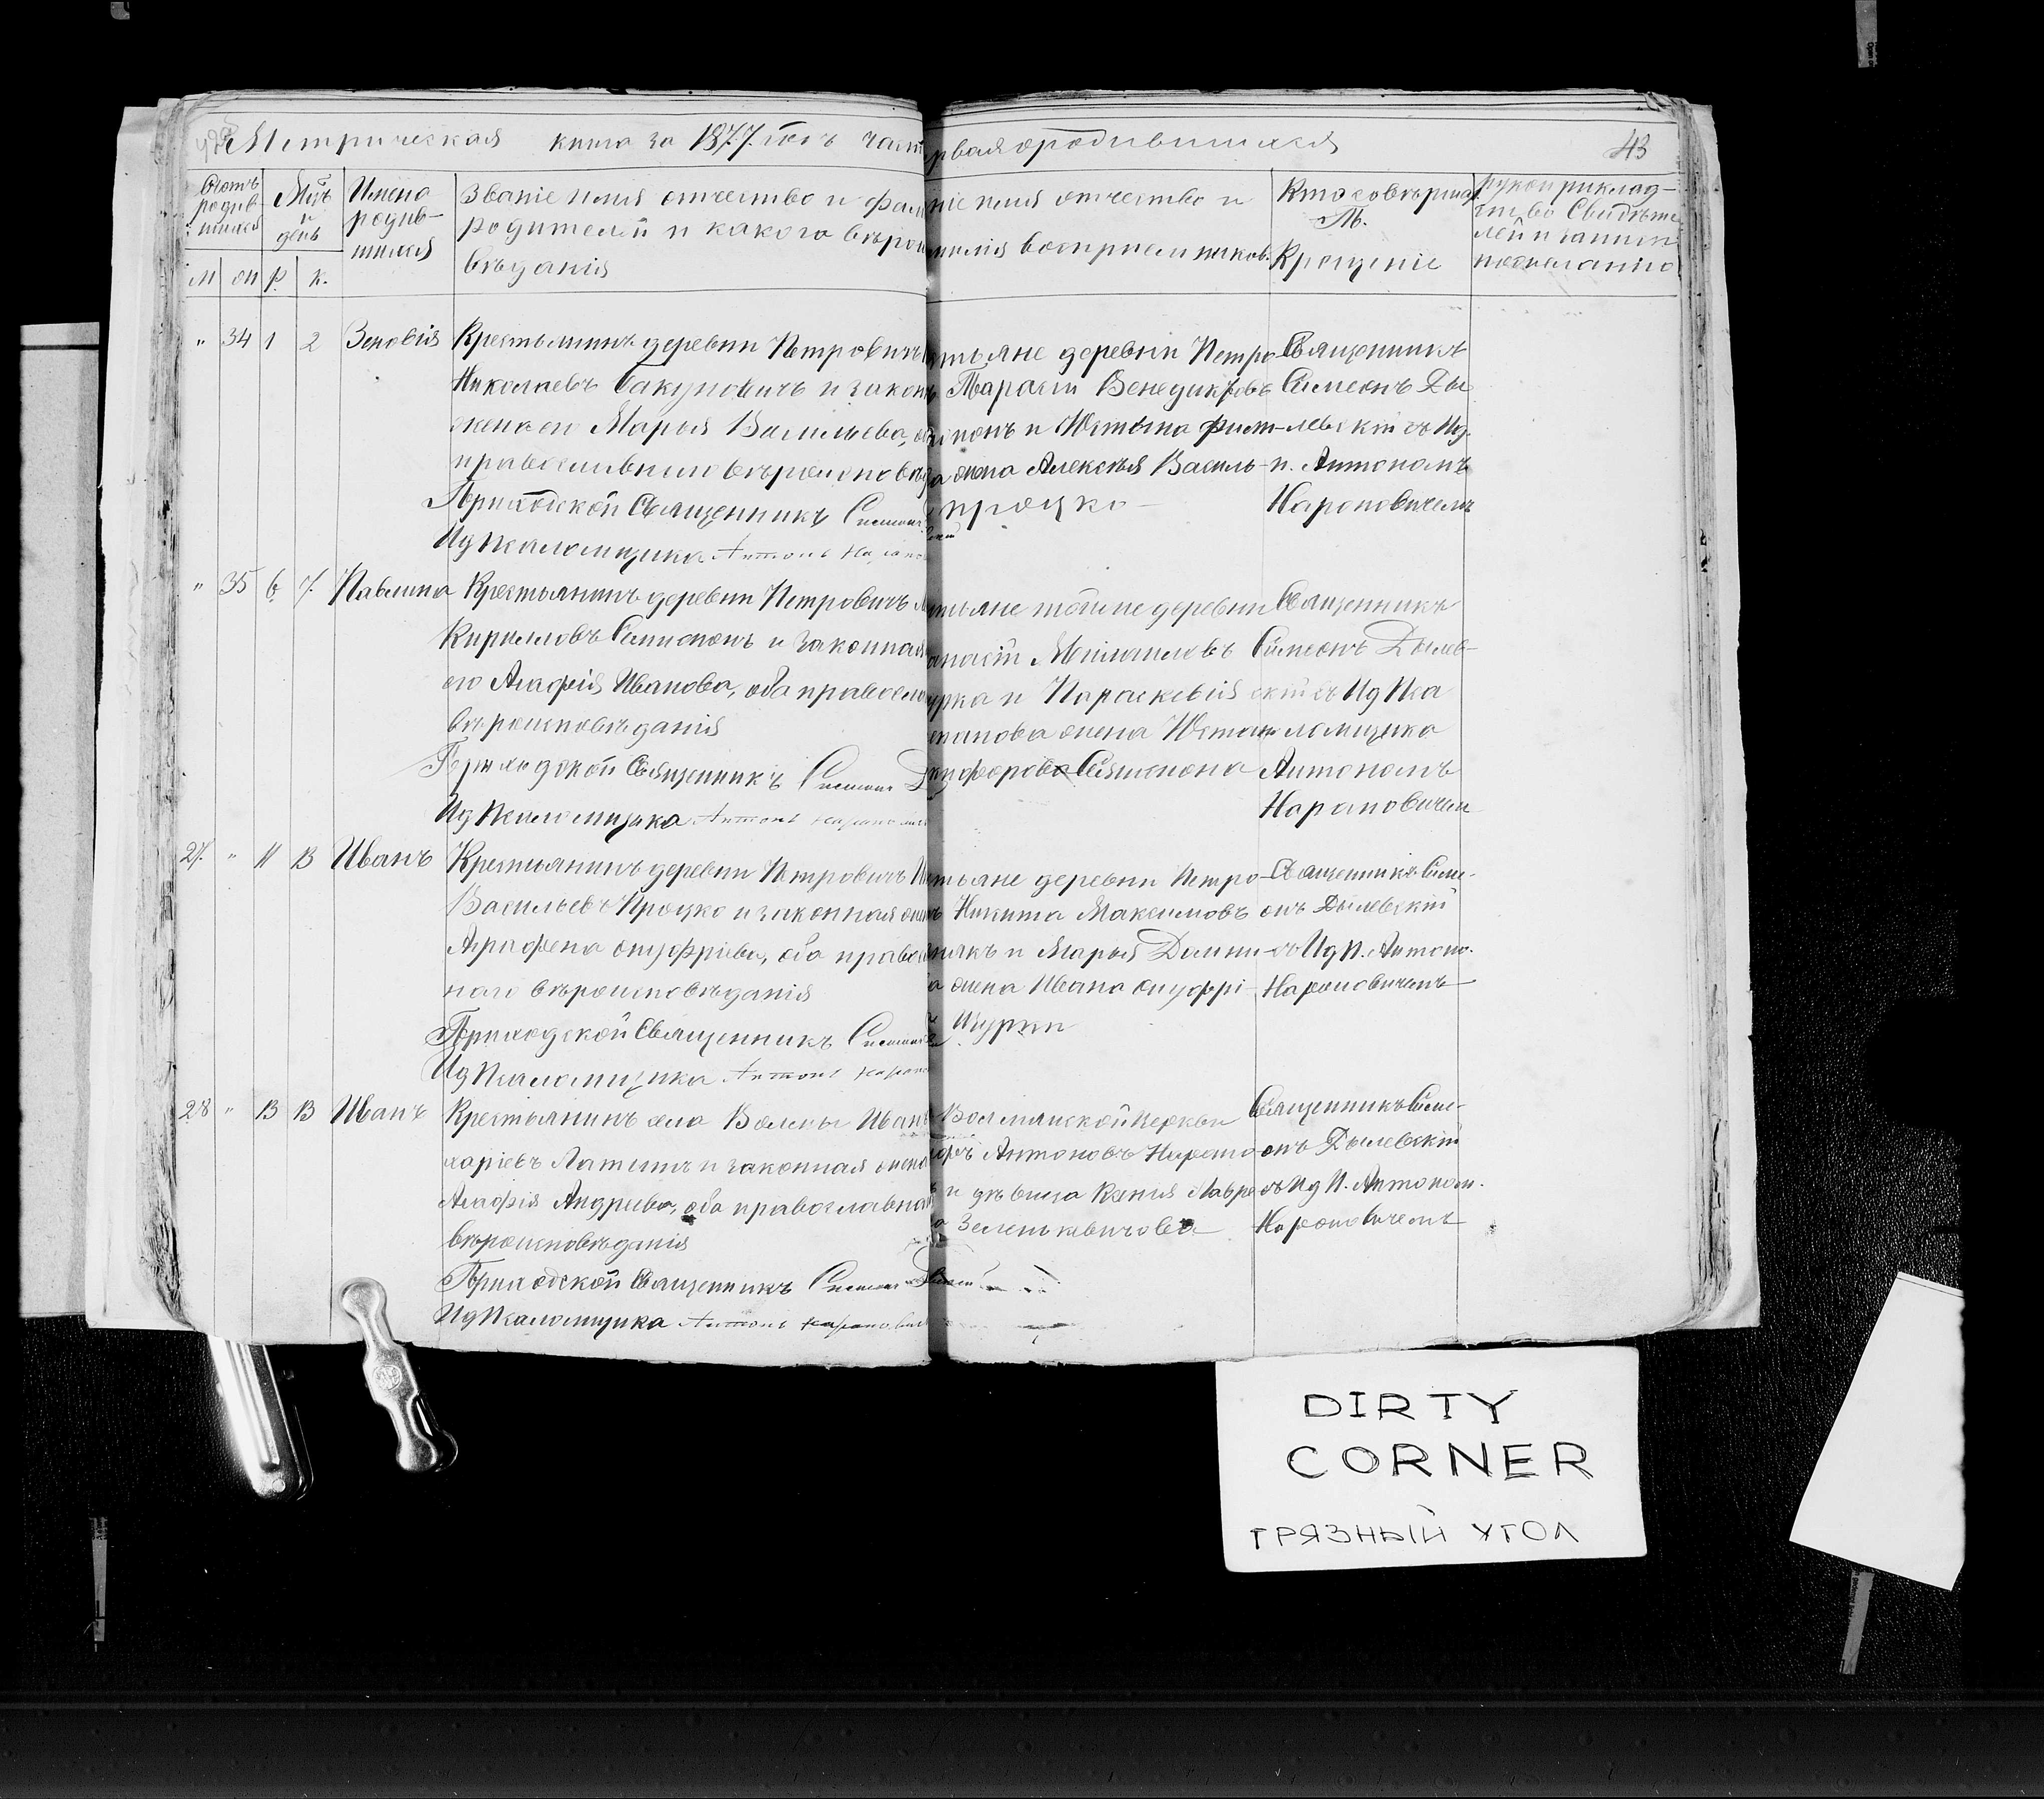 Метрическая книга за 1877 годъ часть
рвая о родившихся
43
Счетъ родив-шихся
Мцъ и день
Имена родив-шихся
Званіе имя отчество и фам
родителей и какого вѣрои
вѣданія
ніе имя отчество и
милія воспріемниковъ.
Кто совершал
Тъ.
Крещеніе
рукоприклад-
ство Свидѣте
лей
м он р. к.
" 34 1 2 Зеновія
Крестьянинъ деревни Петровичъ
Николаевъ Бакуновичъ и закон
жена его Марья Васильева, об
православнаго вѣроисповѣд
Приходской Священникъ Симеон
Ид Псаломщика Антонъ
стьяне деревни Петро
Тарасій Венедиктовъ
понъ и Устина
жена Алексѣя Василь-
процко -
Священникъ
Симеонъ Ды
левскій съ Ид.
п. Антономъ
Нароновичемъ
" 35 6 7. Павлина
Крестьянинъ деревни Петровичъ
Кирилловъ и законная
его Агафія Иванова, оба правосла
вѣроисповѣданія
Приходской Священникъ Симеонъ Д
Ид Псаломщика Антонъ
стьяне тойже деревни
анасій Михаиловъ
урка и Параскевія
епанова жена
Священникъ
Симеонъ Дылев-
скій съ Ид Пса
ломщика
Антономъ
Нароновичем
27. " 11 13 Иванъ
Крестьянинъ деревни Петровичъ
Васильевъ Процко и законная жен
Агрифена Онуфріева, оба правос
наго вѣроисповѣданія
Приходской Священникъ Симеон
Ид Псаломщика Антонъ
стьяне деревни Петро-
Никита Максимовъ
якъ и Марья Данни-
жена Ивана Онуфрі
Шурки
Священникъ Симе-
онъ Дылевскій
съ Ид п. Антоно.
Нароновичемъ
28 " 13 13 Иванъ
Крестьянинъ села Волмы Иванъ
харіевъ Латышъ и законная жена
Агафія Андреева, оба православна
вѣроисповѣданія
Приходской Священникъ Симеон
Ид Псаломщика Антонъ Наронович
Волмянской Церкви
Антоновъ Нароно
и дѣвица Ксенія Лавре
Зеленькевичова
Священникъ Симе-
онъ Дылевскій
съ Ид П. Антоном.
Нароновичемъ
DIRTY
CORNER
ГРЯЗНЫЙ УГОЛ